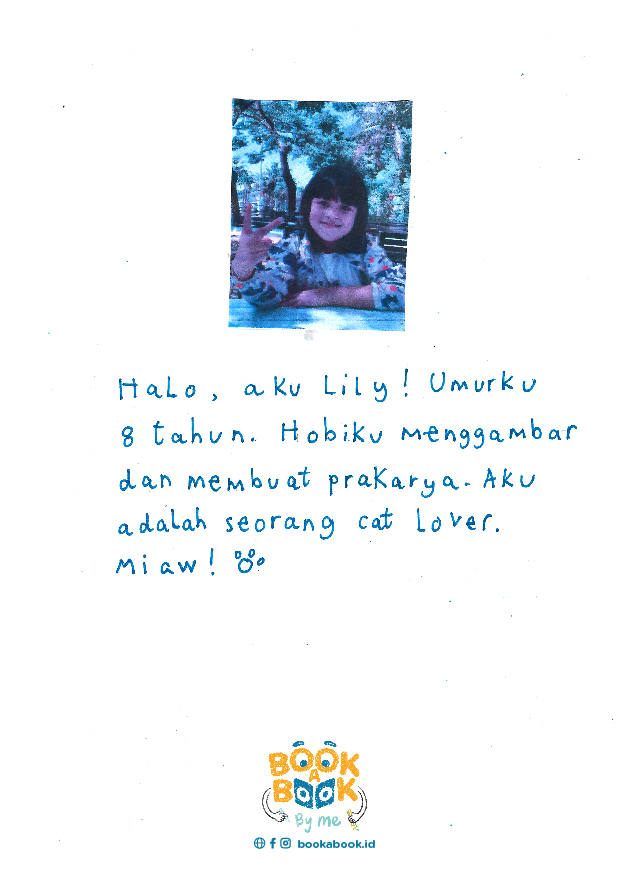 Halo, aku Lily! Umurku
8 tahun. Hobiku menggambar
dan membuat prakarya. Aku
adalah seorang cat lover.
Miaw!
BOOK
A
BOOK
By me
bookabook.id